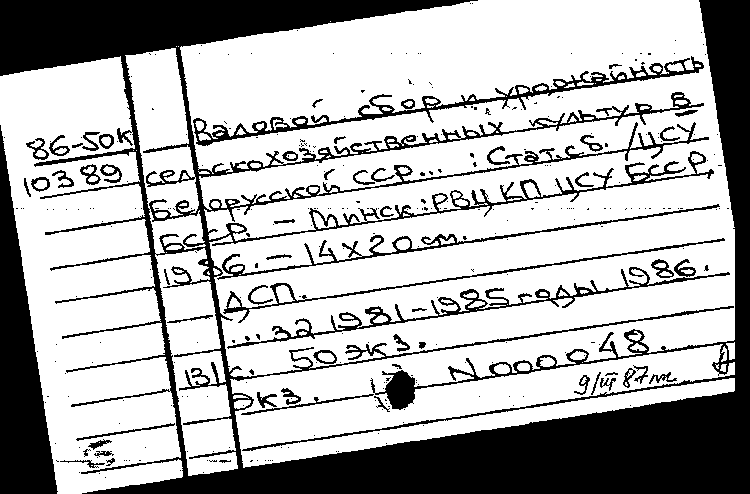 86-50К
10389
Валовой сбор и урожайность
сельскохозяйственных культур в
Белорусской ССР... : Стат.сб. /ЦСУ
БССР. – Минск: РВЦ КП ЦСУ БССР,
1986. – 14×20 см.
ДСП.
... за 1981–1985 годы. 1986.
131 с. 50 экз.
экз. N000048.
9/III 87